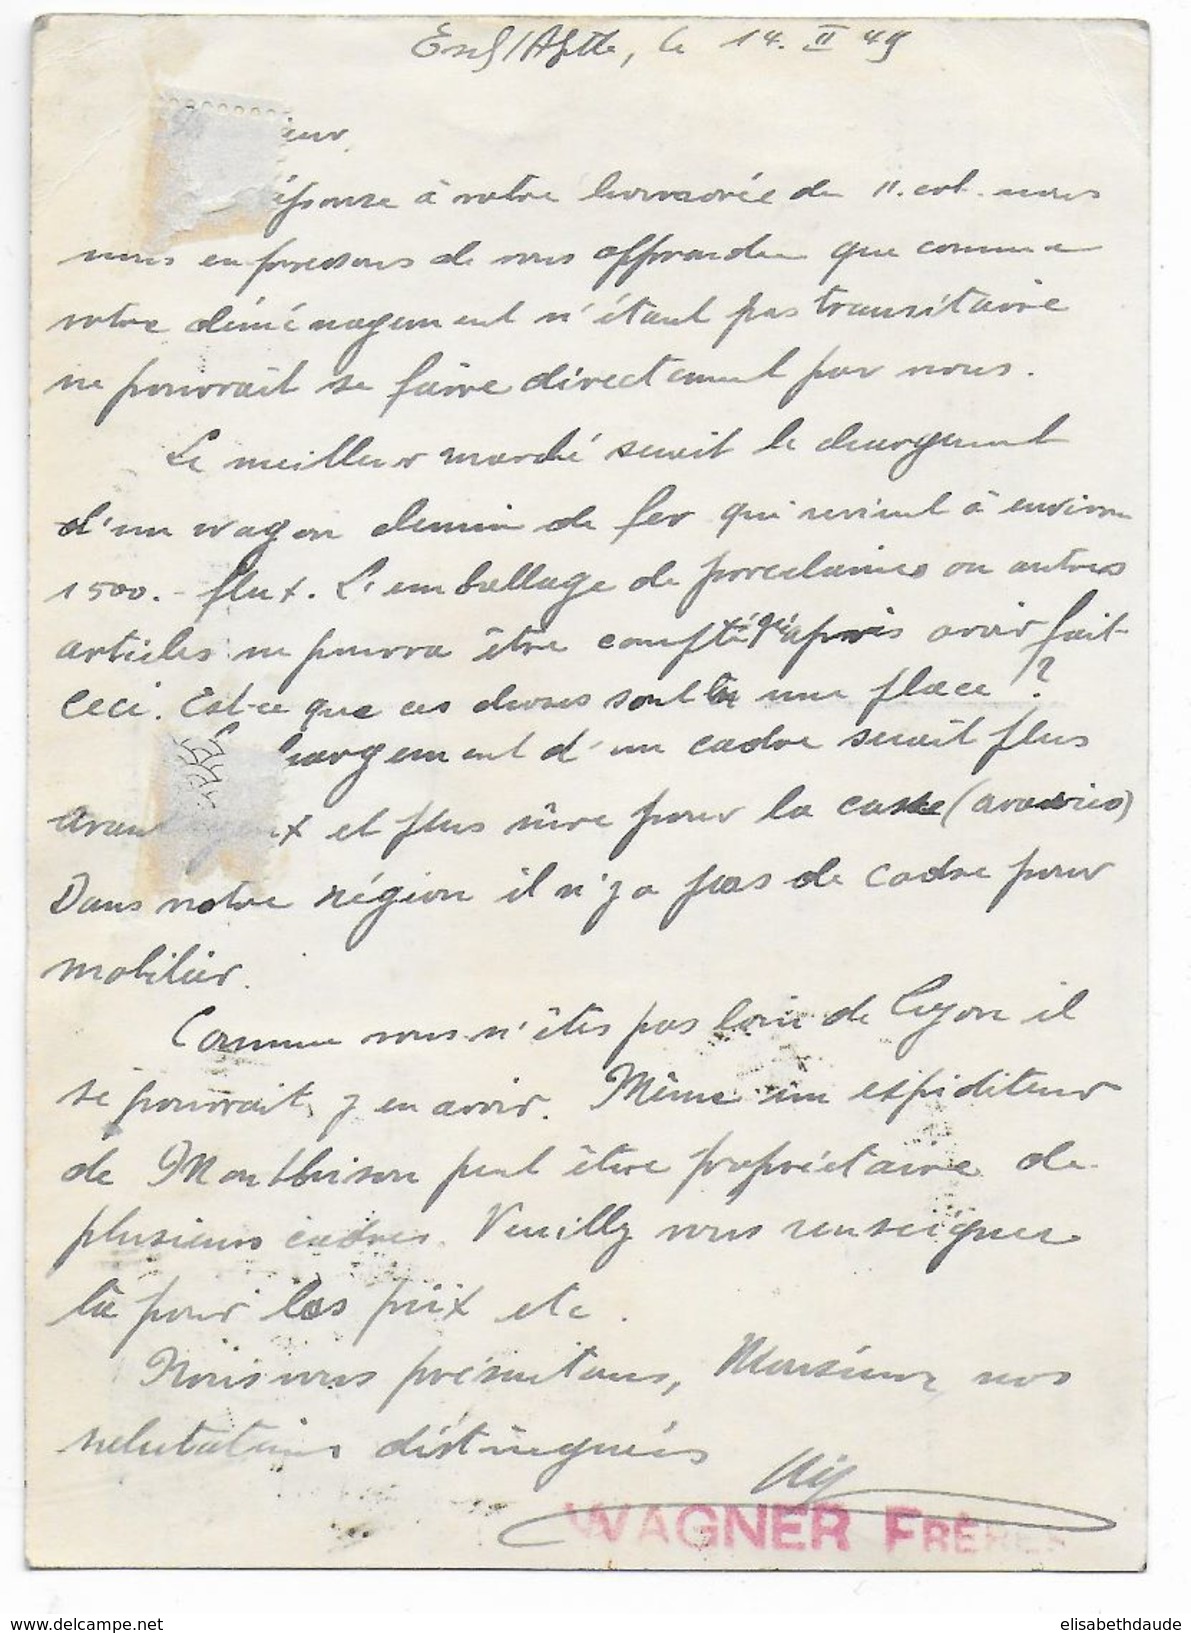 Esch/Alzette, le 14. II 49
ieur
éponse à votre honorée du 11. crt. nous
nous empressons de vous apprendre que comme
votre déménagement n'étant pas transitaire
ne pourrait se faire directement par nous.
Le meilleur marché serait le chargement
d'un wagon chemin de fer qui revient à environ
1500.- flux. L'emballage de porcelaines ou autres
articles ne pourra être compté qu'après avoir fait
ceci. Est-ce que ces choses sont sur une place?
hargement d'un cadre serait plus
avan x et plus sûre pour la casse (avaries)
Dans notre région il n'y a pas de cadre pour
mobilier.
Comme vous n'êtes pas loin de Lyon il
se pourrait y en avoir. Même un expéditeur
de Montbrison peut être propriétaire de
plusieurs cadres. Veuillez vous renseigner
là pour les prix etc.
Nous vous présentons, Monsieur, nos
salutations distinguées
WAGNER FRÈRES
elisabethdaude